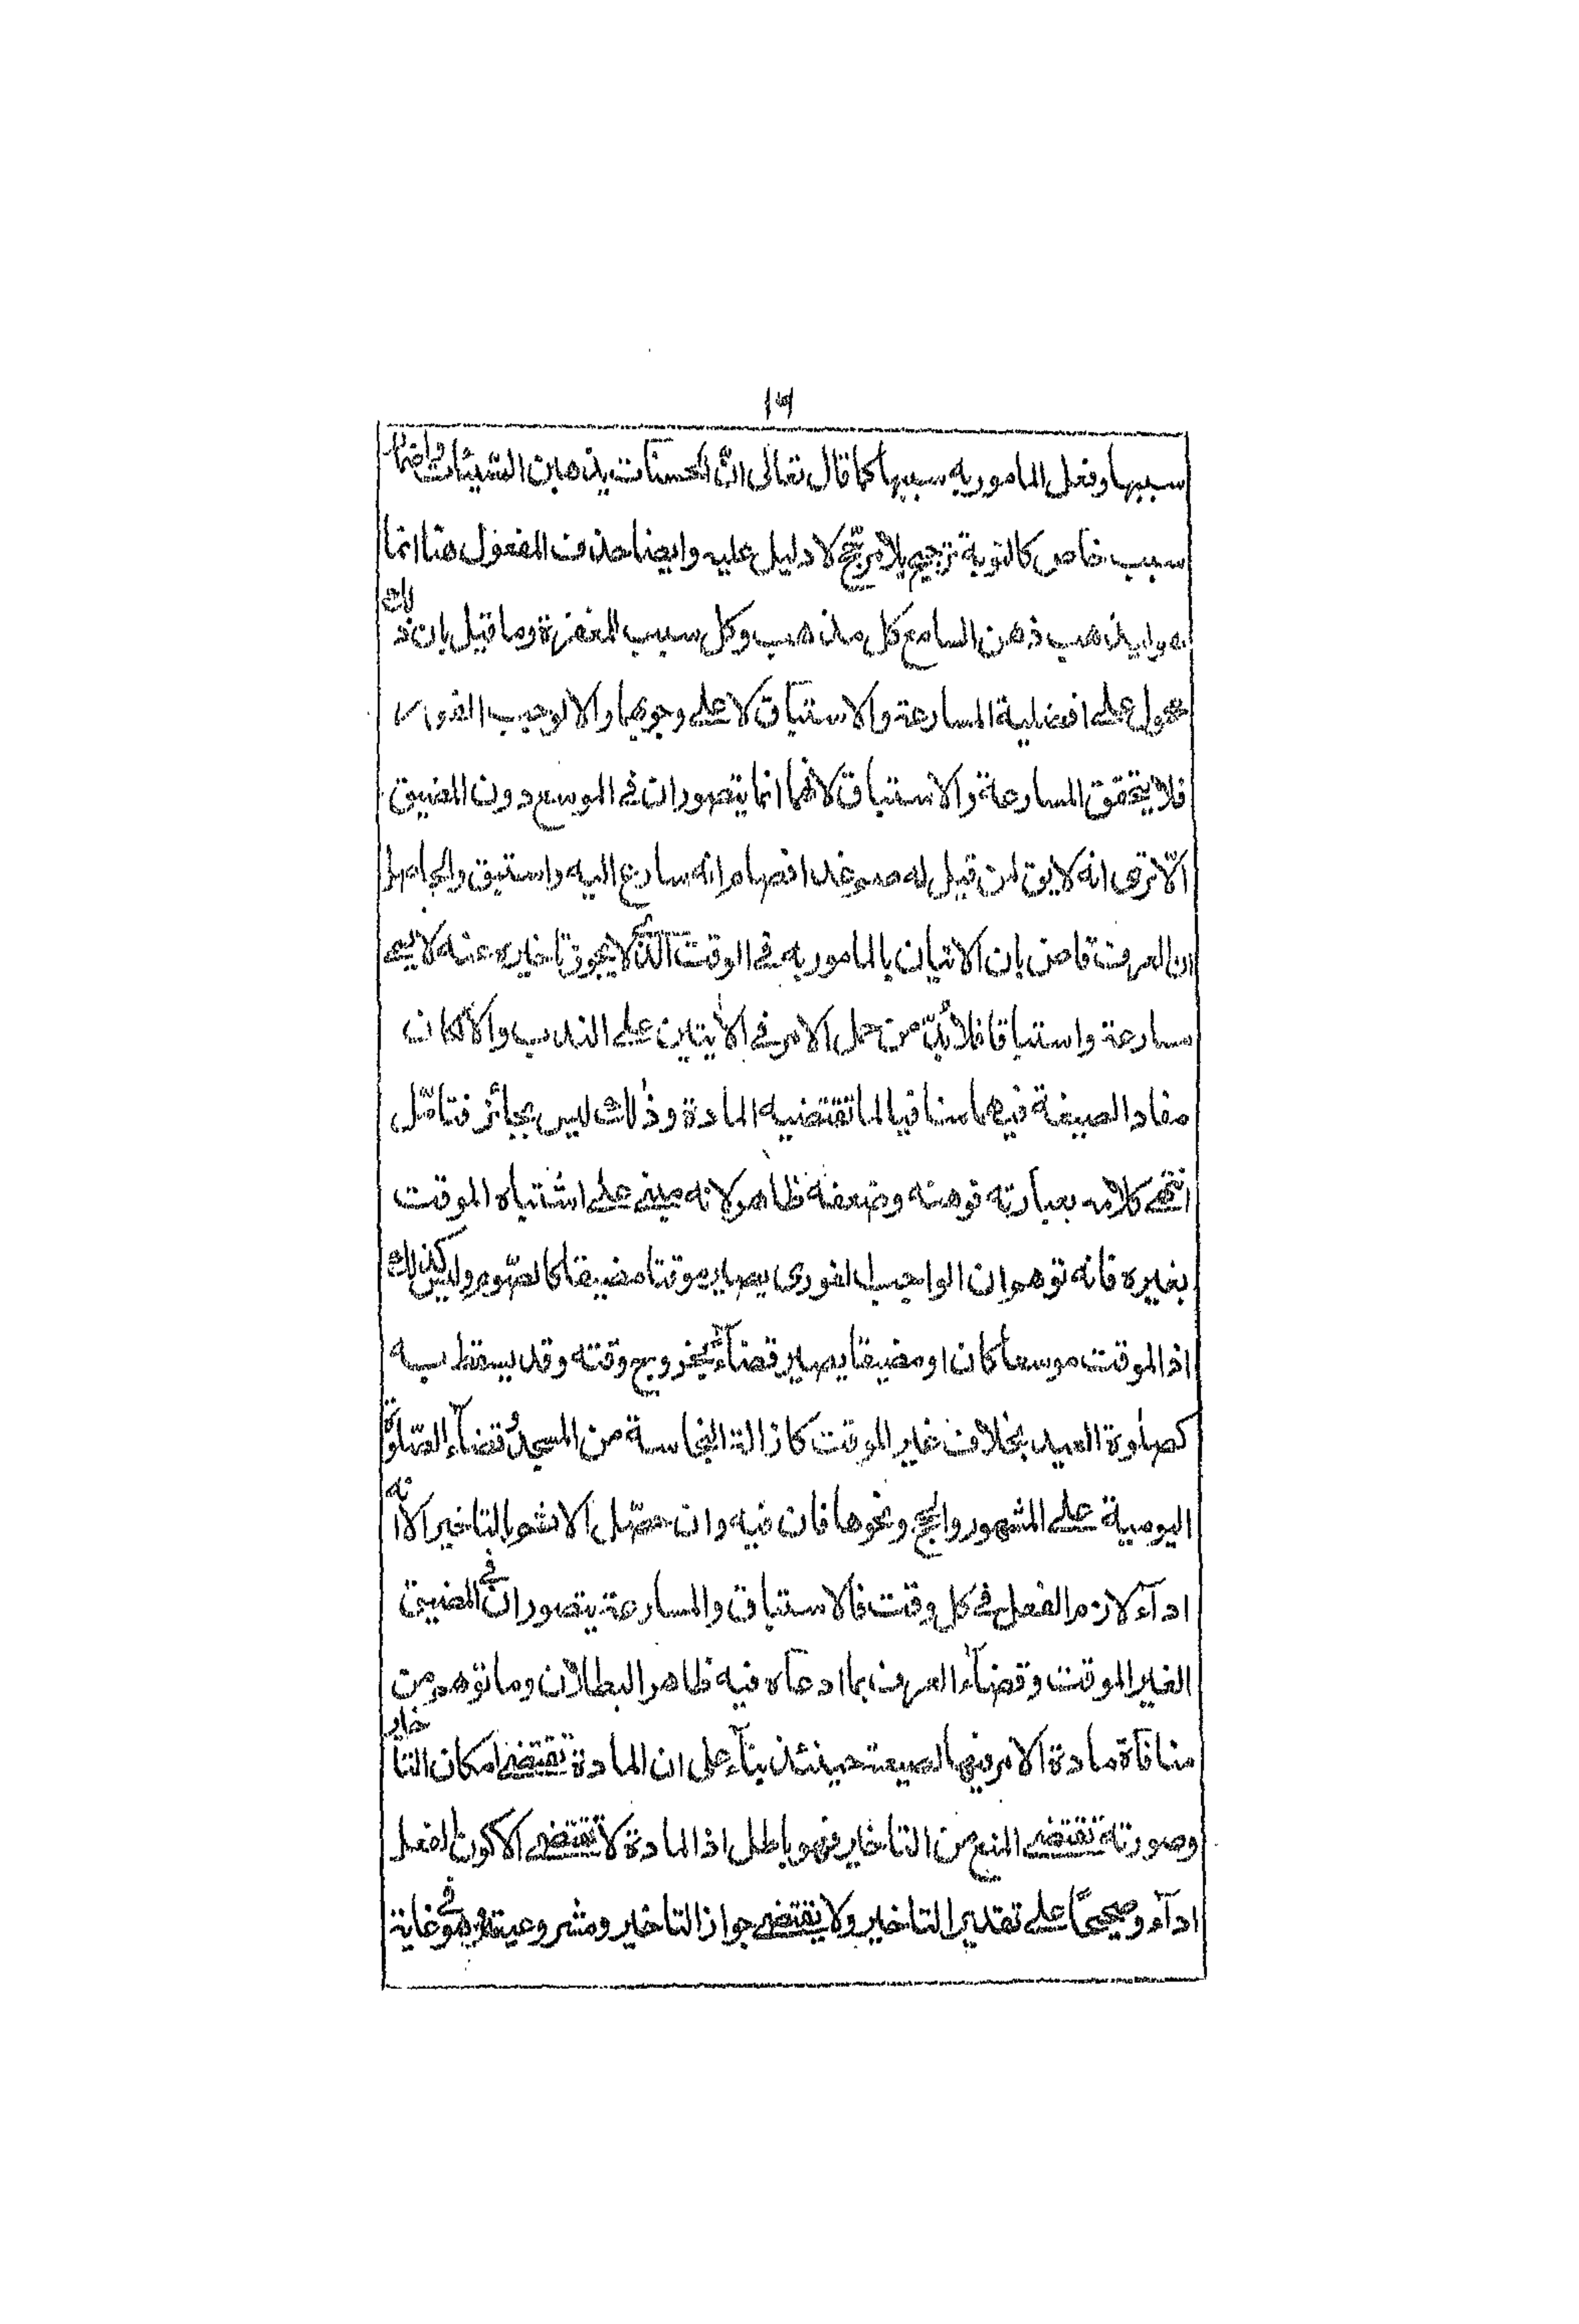 ١٦
سببها وفعل المامور به سببها كما قال تعالى انّ الحسنات يذهبن السّيئات واضما
سبب خاص كالتوبة ترجيح بلا مرجّح لا دليل عليه وايضا حذف المفعول هنا انما
هو ليذهب ذهن السامع كل مذهب وكل سبب المغفرة وما قيل بان ذلك
محمول على افضلية المسارعة والاستباق لا على وجوبهما والا لوجب الفور
فلا يتحقق المسارعة والاستباق لانهما انما يتصوران في الموسع دون المضيق
الا ترى انه لا يق لمن قيل له صم غدا فصام انه سارع اليه واستبق والحاصل
ان العرف قاض بان الاتيان بالمامور به في الوقت الذى لا يجوز تاخيره عنه لا يسمى
مسارعة واستباقا فلا بدّ من حمل الامر في الايتين على الندب والا لكان
مفاد الصيغة فيهما منافيا لما تقتضيه المادة وذلك ليس بجائز فتامّل
انتهى كلامه بعبارته فوهنه وضعفه ظاهر لانه مبنى على اشتباه الموقت
بغيره فانه توهم ان الواجب الفورى يصير موقتا مضيقا كالصّوم وليس كذلك
اذ الموقت موسعا كان او مضيقا يصير قضآء بخروج وقته وقد يسقط به
كصلوة العيد بخلاف غير الموقت كازالة النجاسة من المسجد وقضآء الصّلوة
اليومية على المشهور والحج ونحوها فان فيه وان حصّل الاثم بالتاخير الا انه
ادآء لازم الفعل في كل وقت فالاستباق والمسارعة يتصوران في المضيق
الغير الموقت وقضآء العرف بما ادعآه فيه ظاهر البطلان وما توهم من
منافآة مادة الامر فيها لصيغته حينئذ بنآء على ان المادة تقتضى امكان التاخير
وصورته تقتضى المنع من التاخير فهو باطل اذ المادة لا تقتضى الا كون الفعل
ادآء وصحيحًا على تقدير التاخير ولا يقتضى جواز التاخير ومشروعيته وهو في غاية